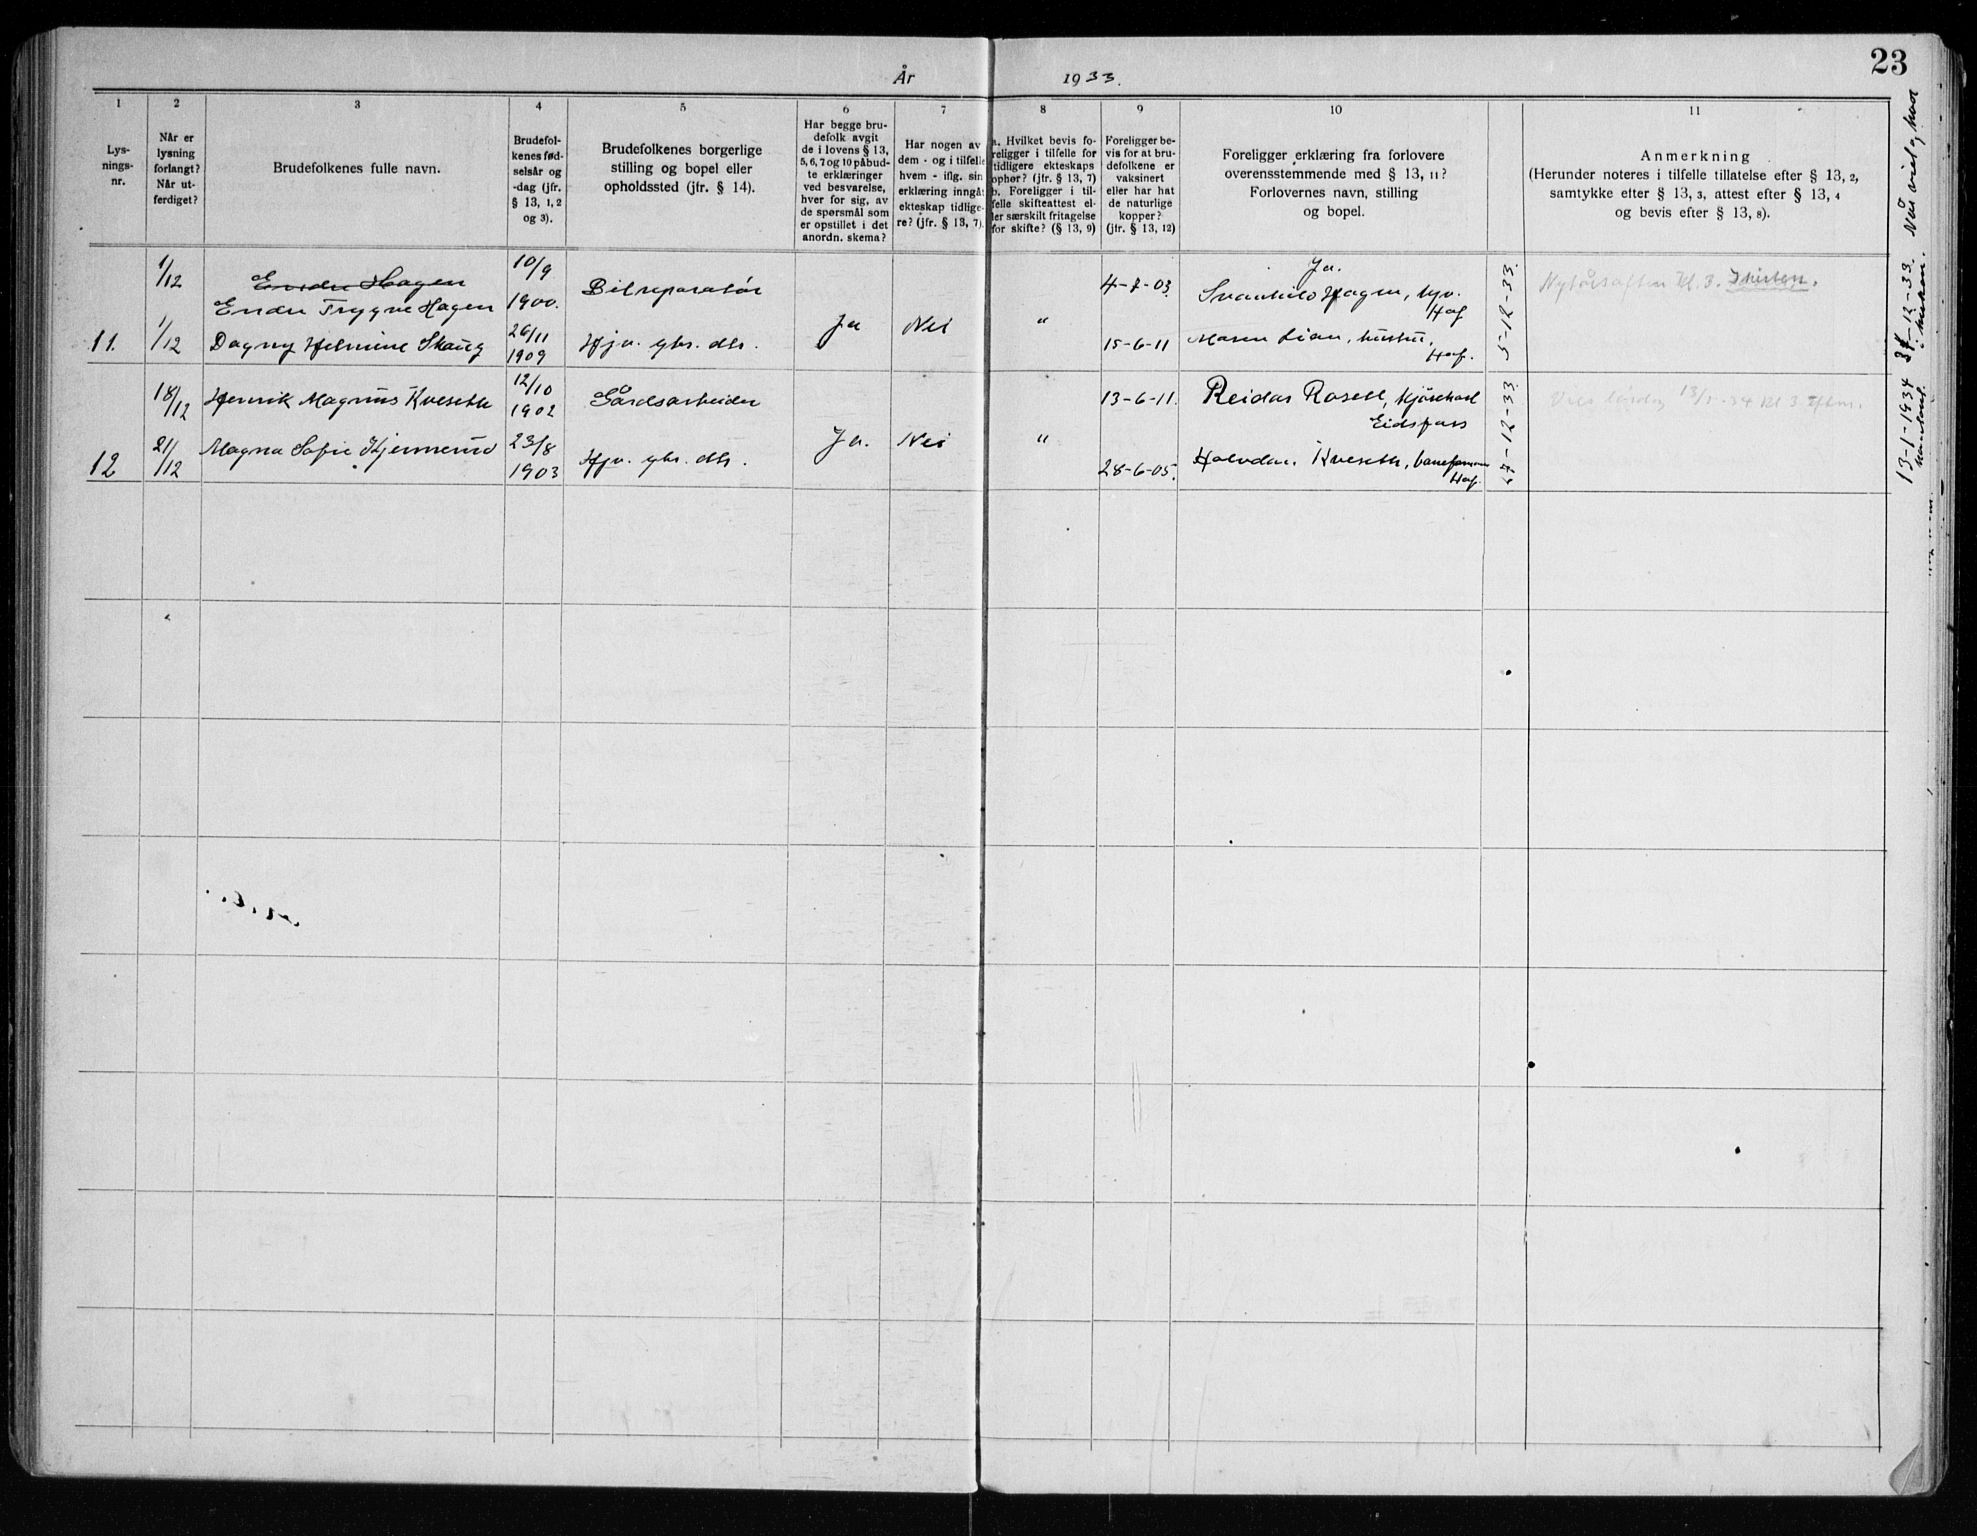 23
År 1933.
1
2
3
4
5
6
7
8
9
10
11
Lys-
nings-
nr.
Når er
lysning
forlangt?
Når ut-
ferdiget?
Brudefolkenes fulle navn.
Brudefol-
kenes fød-
selsår og
-dag (jfr.
§ 13, 1, 2
og 3).
Brudefolkenes borgerlige
stilling og bopel eller
opholdssted (jfr. § 14).
Har begge bru-
defolk avgit
de i lovens § 13,
5, 6, 7 og 10 påbud-
te erklæringer
ved besvarelse,
hver for sig, av
de spørsmål som
er opstillet i det
anordn. skema?
Har nogen av
dem - og i tilfelle
hvem - iflg. sin
erklæring inngåt
ekteskap tidlige-
re? (jfr. § 13, 7).
a. Hvilket bevis fo-
religger i tilfelle for
tidligere ekteskaps
ophør? (jfr. § 13, 7)
b. Foreligger i til-
felle skifteattest el-
ler særskilt fritagelse
for skifte? (§ 13, 9)
Foreligger be-
vis for at bru-
defolkene er
vaksinert
eller har hat
de naturlige
kopper?
(jfr. § 13, 12)
Foreligger erklæring fra forlovere
overensstemmende med § 13, 11?
Forlovernes navn, stilling
og bopel.
Anmerkning
(Herunder noteres i tilfelle tillatelse efter § 13, 2,
samtykke efter § 13, 3, attest efter § 13, 4
og bevis efter § 13, 8).
1/12
Endre Hagen
Endre Trygve Hagen
10/9
1900.
Bilreparatør
4-7-03.
Ja.
Svanhild Hagen, hjv.
Hof
5-12-33.
Nyttårsaften kl. 3. I kirken.
11.
1/12
Dagny Helmine Skaug
26/11
1909
Hjv. gbr. dtr.
Ja
Nei
"
15-6-11
Maren Lian, hustru,
Hof.
18/12
Henrik Magnus Kveseth
12/10
1902
Gårdsarbeider
13-6-11.
Reidar Rosell,
Eidsfoss
-12-33.
13/1-34 kl 3 Eftm.
12
21/12
Magna Sofie Hjemmerud
23/8
1903
Hjv. gbr. dtr.
Ja.
Nei
"
28-6-05.
Halvdan Kveseth,
Hof.
-12-33. Når viet og hvor
13-1-1934